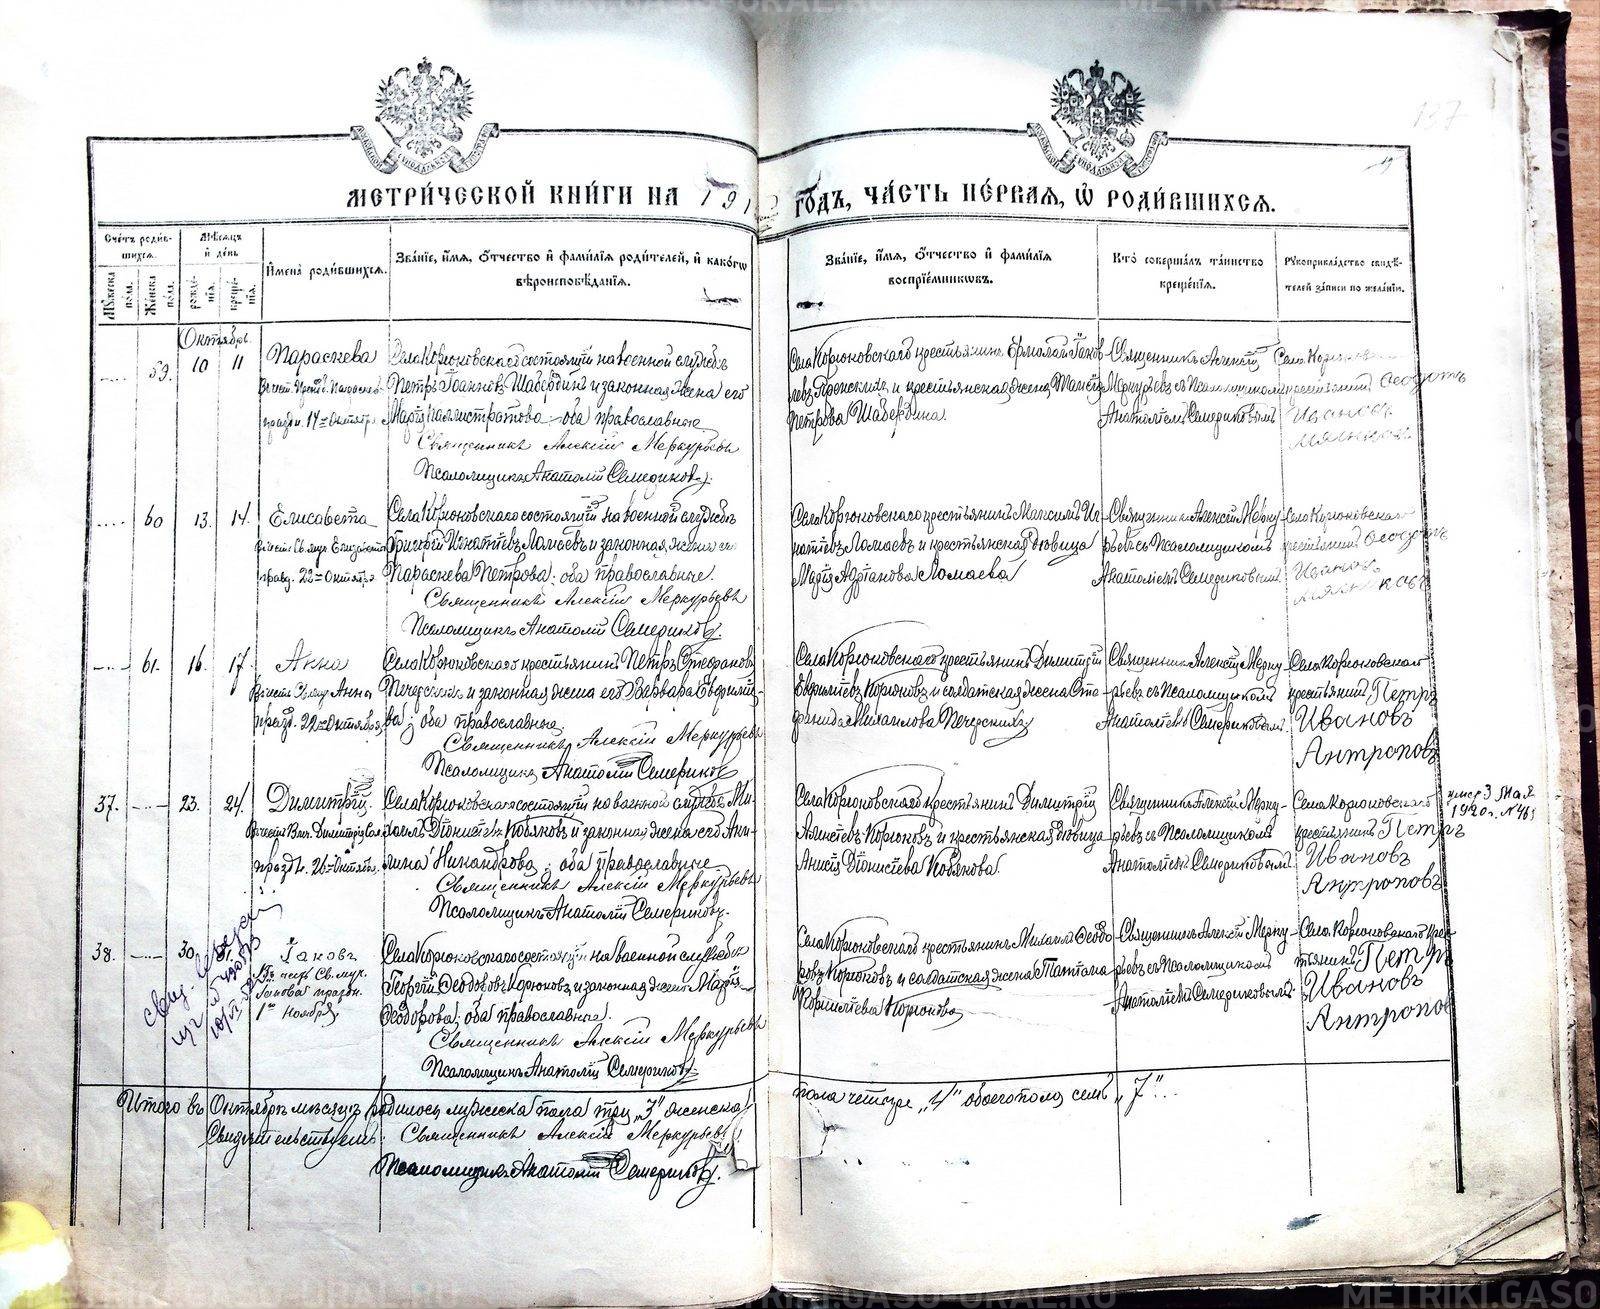 137
МЕТРИЧЕСКОЙ КНИГИ НА 191 ГОДЪ, ЧАСТЬ ПЕРВАЯ, Ѡ РОДИВШИХСЯ.
Счетъ родив-
шихся.
Мужеска пола.
Женска пола.
Мѣсяцъ и день
рожде-
нія.
креще-
нія.
Имена родившихся.
Званіе, имя, отчество и фамилія родителей, и какогω
вѣроисповѣданія.
Званіе, имя, отчество и фамилія
воспріемниковъ.
Кто совершалъ таинство
крещенія.
Рукоприкладство свидѣ-
телей записи по желанію.
Октябрь
59. 10 11 Параскева
праздн. 14го Октября
Села Корюковскаго состоящій на военной службѣ
Петръ Іоанновъ Шабердинъ и законная жена его
Марія Каллистратова оба православные
Священникъ Алексій Меркурьевъ
Псаломщикъ Анатолій Семериковъ.
Села Корюковскаго крестьянинъ Ермолай Іаков-
левъ и крестьянская жена
Петрова Шабердина.
Священникъ Алексій
Меркурьевъ съ Псаломщикомъ
Анатоліемъ Семериковымъ
Села Корюковскаго
крестьянинъ Ѳеодотъ
Ивановъ
60 13. 14. Елисавета
празд. 22го Октября
Села Корюковскаго состоящій на военной службѣ
Григорій Игнатіевъ Ломаевъ и законная жена его
Параскева Петрова; оба православные.
Священникъ Алексій Меркурьевъ
Псаломщикъ Анатолій Семериковъ.
Села Корюковскаго крестьянинъ Максимъ Иг-
натіевъ Ломаевъ и крестьянская вдовица
Марія Адріанова Ломаева
Священникъ Алексій Мерку-
рьевъ съ Псаломщикомъ
Анатоліемъ Семериковымъ
Села Корюковскаго
крестьянинъ Ѳеодотъ
Ивановъ
61. 16. 17. Анна
Въ честь Св. Анны
празд. 22го Октября
Села Корюковскаго крестьянинъ Петръ Стефановъ
Печерскихъ и законная жена его Варвара Евфиміе-
ва; оба православные,
Священникъ Алексій Меркурьевъ
Псаломщикъ Анатолій Семериковъ
Села Корюковскаго крестьянинъ Димитрій
Евфиміевъ Корюковъ и солдатская жена Сте-
фанида Михаилова Печерскихъ
Священникъ Алексій Мерку-
рьевъ съ Псаломщикомъ
Анатоліемъ Семериковымъ
Села Корюковскаго
крестьянинъ Петръ
Ивановъ
Антроповъ
37. 23. 24. Димитрій.
празд. 26го Октября.
Села Корюковскаго состоящій на военной службѣ Ми-
хаилъ Діонисіевъ Кобяковъ и законная жена его Ани-
Никандрова; оба православные
Священникъ Алексій Меркурьевъ
Псаломщикъ Анатолій Семериковъ.
Села Корюковскаго крестьянинъ Димитрій
Корюковъ и крестьянская вдовица
Анисія Діонисіева Кобякова.
Священникъ Алексій Мерку-
рьевъ съ Псаломщикомъ
Анатоліемъ Семериковымъ
Села Корюковскаго
крестьянинъ Петръ
Ивановъ
Антроповъ
умер 3 Мая
1920 г. № 46
38. 30. 31. Іаковъ
Іакова праздн.
1го Ноября
Села Корюковскаго состоящій на военной службѣ
Георгій Ѳеодоровъ Корюковъ и законная жена Марія
Ѳеодорова; оба православные.
Священникъ Алексій Меркурьевъ
Псаломщикъ Анатолій Семериковъ.
Села Корюковскаго крестьянинъ Михаилъ Ѳеодо-
ровъ Корюковъ и солдатская жена Татіана
Корниліева Корюкова
Священникъ Алексій Мерку-
рьевъ съ Псаломщикомъ
Анатоліемъ Семериковымъ.
Села Корюковскаго крес-
тьянинъ Петръ
Ивановъ
Антропов
Итого въ Октябрѣ мѣсяцѣ родилось мужеска пола три „3" женска
пола четыре „4" обоего пола семь „7"...
Свидѣтельствуемъ: Священникъ Алексій Меркурьевъ
Псаломщикъ Анатолій Семериковъ.
METRIKI.GASO-URAL.RU